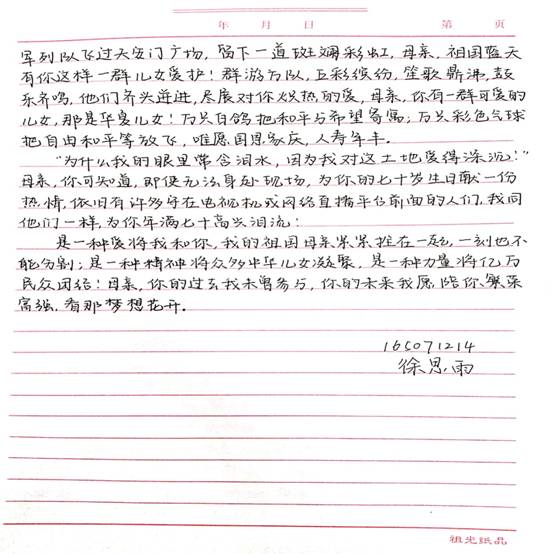 年 月 日 第 页
军列队飞过天安门广场，留下一道斑斓彩虹，母亲，祖国蓝天
有你这样一群儿女爱护！群游方队，五彩缤纷，笙歌鼎沸，鼓
乐齐鸣，他们齐头并进，尽展对你炽热的爱，母亲，你有一群可爱的
儿女，那是华夏儿女！万只白鸽把和平与希望寄寓；万只彩色气球
把自由和平等放飞，唯愿国恩家庆，人寿年丰。
“为什么我的眼里常含泪水，因为我对这土地爱得深沉！”
母亲，你可知道，即便无法身赴现场，为你的七十岁生日献一份
热情，依旧有许多守在电视机或网络直播平台前面的人们，我同
他们一样，为你年满七十高兴泪流：
是一种爱将我和你，我的祖国母亲紧紧拴在一起，一刻也不
能分割；是一种精神将众多中华儿女凝聚，是一种力量将亿万
民众团结！母亲，你的过去我未曾参与，你的未来我愿陪你，繁荣
富强，看那梦想花开。
165071214
徐思雨
祖光纸品